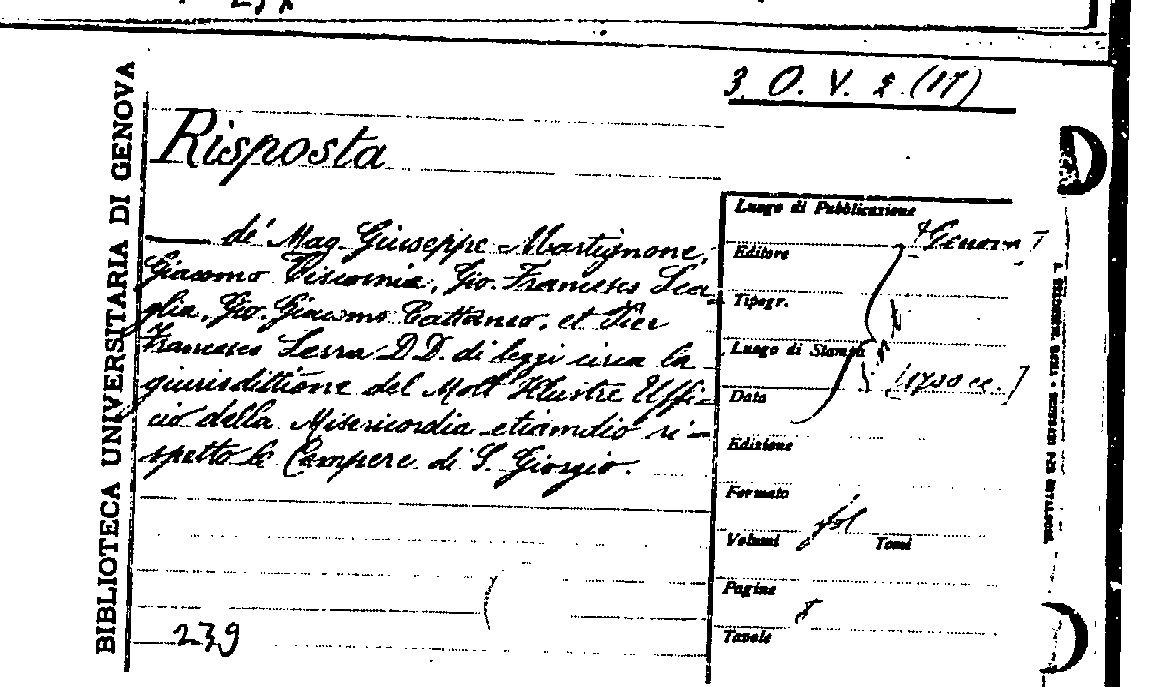 3. O. V. 2. (17)
BIBLIOTECA UNIVERSITARIA DI GENOVA
Risposta
de' Mag. Giuseppe Martignone,
Giacomo Viscornia, Gio. Francesco Sca-
glia, Gio. Giacomo Cattaneo, et Pier
Francesco Serra D.D. di leggi circa la
giurisdittione del Molt' Illustre Uffi-
cio della Misericordia etiamdio ri-
spetto le Compere di S. Giorgio.
239
Luogo di Pubblicazione
[Genova]
Editore
Tipogr.
Luogo di Stampa
Data
Edizione
Formato
fol
Volumi
Tomi
Pagine
8
Tavole